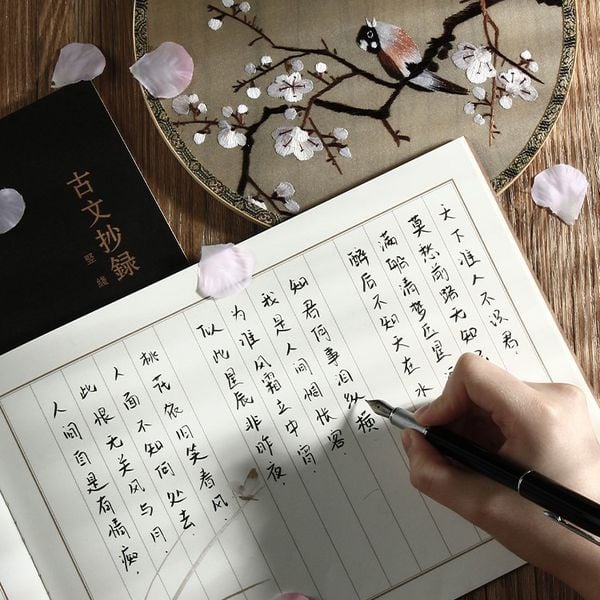 古文抄録
竖线
天下谁人不识君.
莫愁前路无知
满船清梦压星
醉后不知天在水
知君何事泪纵横
我是人间惆怅客.
为谁风霜立中宵.
似此星辰非昨夜.
桃花依旧笑春风.
人面不知何处去.
此恨无关风与月.
人间自是有情痴.